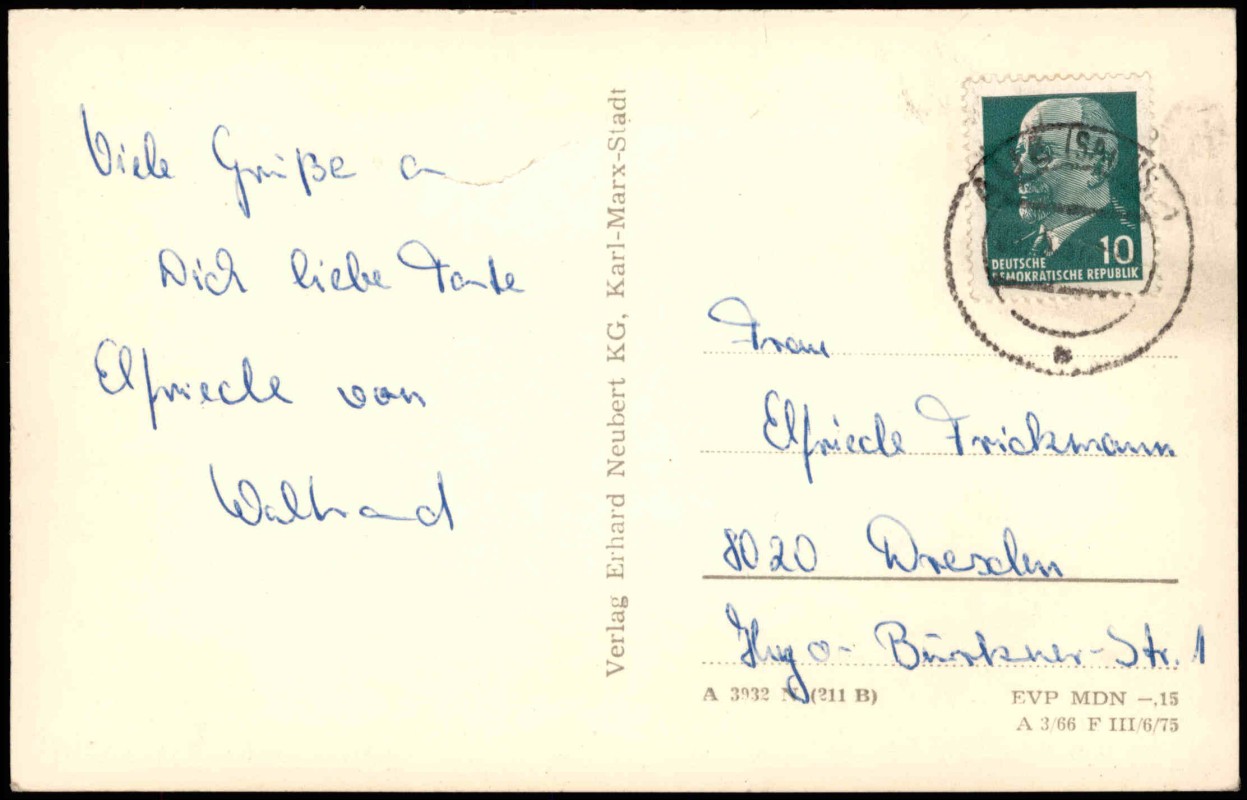 Viele Grüße an
Dich liebe Tante
Elfriede von
Waltraud
Verlag Erhard Neubert KG, Karl-Marx-Stadt
10
DEUTSCHE
DEMOKRATISCHE REPUBLIK
Frau
Elfriede Frickmann
8020 Dresden
Hugo-Bürkner-Str. 1
A 3932 N (211 B)
EVP MDN –,15
A 3/66 F III/6/75